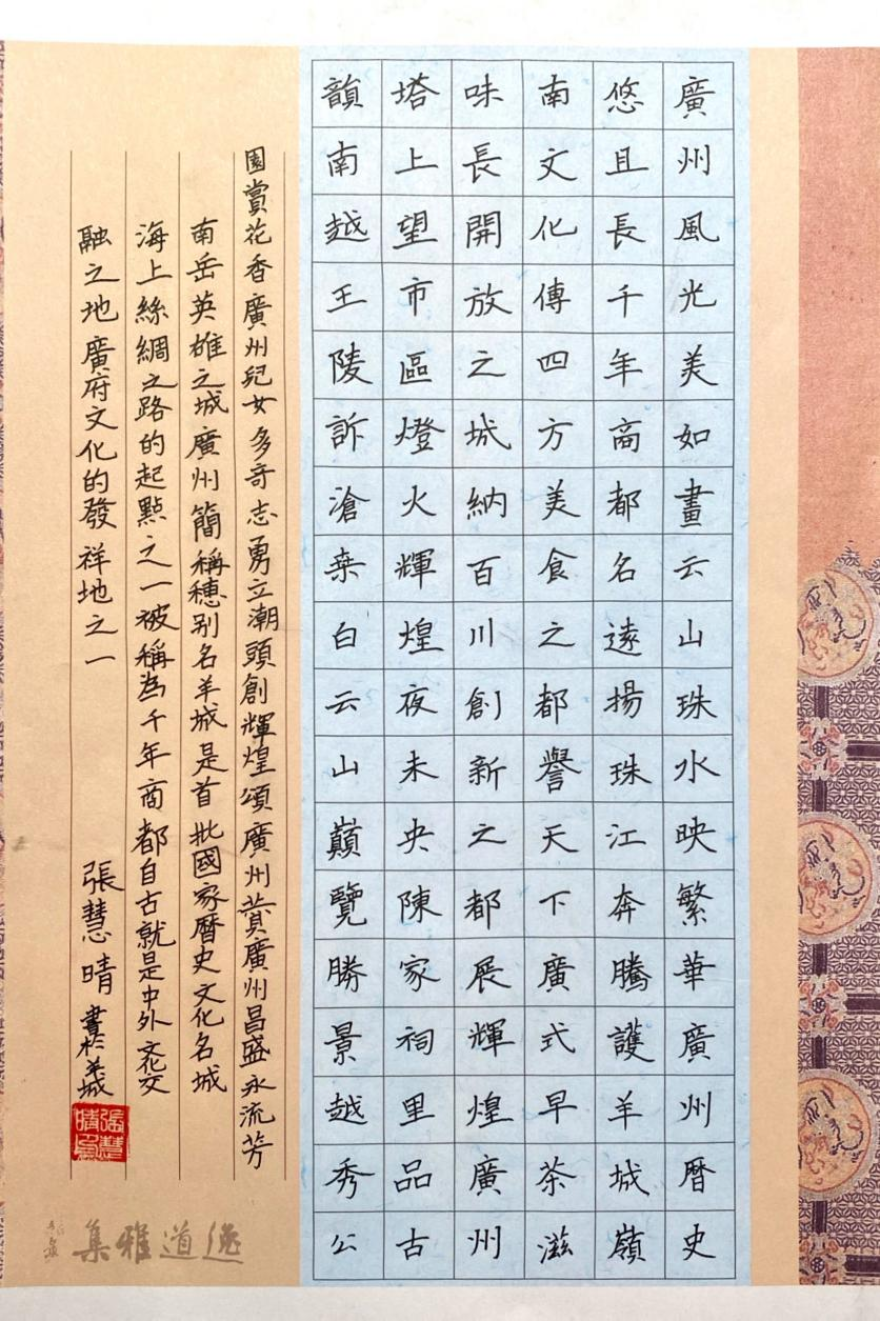 廣州風光美如畫云山珠水映繁華廣州曆史
悠且長千年商都名遠揚珠江奔騰護羊城嶺
南文化傳四方美食之都譽天下廣式早茶滋
味長開放之城納百川創新之都展輝煌廣州
塔上望市區燈火輝煌夜未央陳家祠里品古
韻南越王陵訴滄桑白云山巔覽勝景越秀公
園賞花香廣州兒女多奇志勇立潮頭創輝煌頌廣州贊廣州昌盛永流芳
南岳英雄之城廣州簡稱穗别名羊城是首批國家曆史文化名城
海上絲綢之路的起點之一被稱為千年商都自古就是中外文化交
融之地廣府文化的發祥地之一 張慧晴書於羊城
張慧晴印
逸道雅集